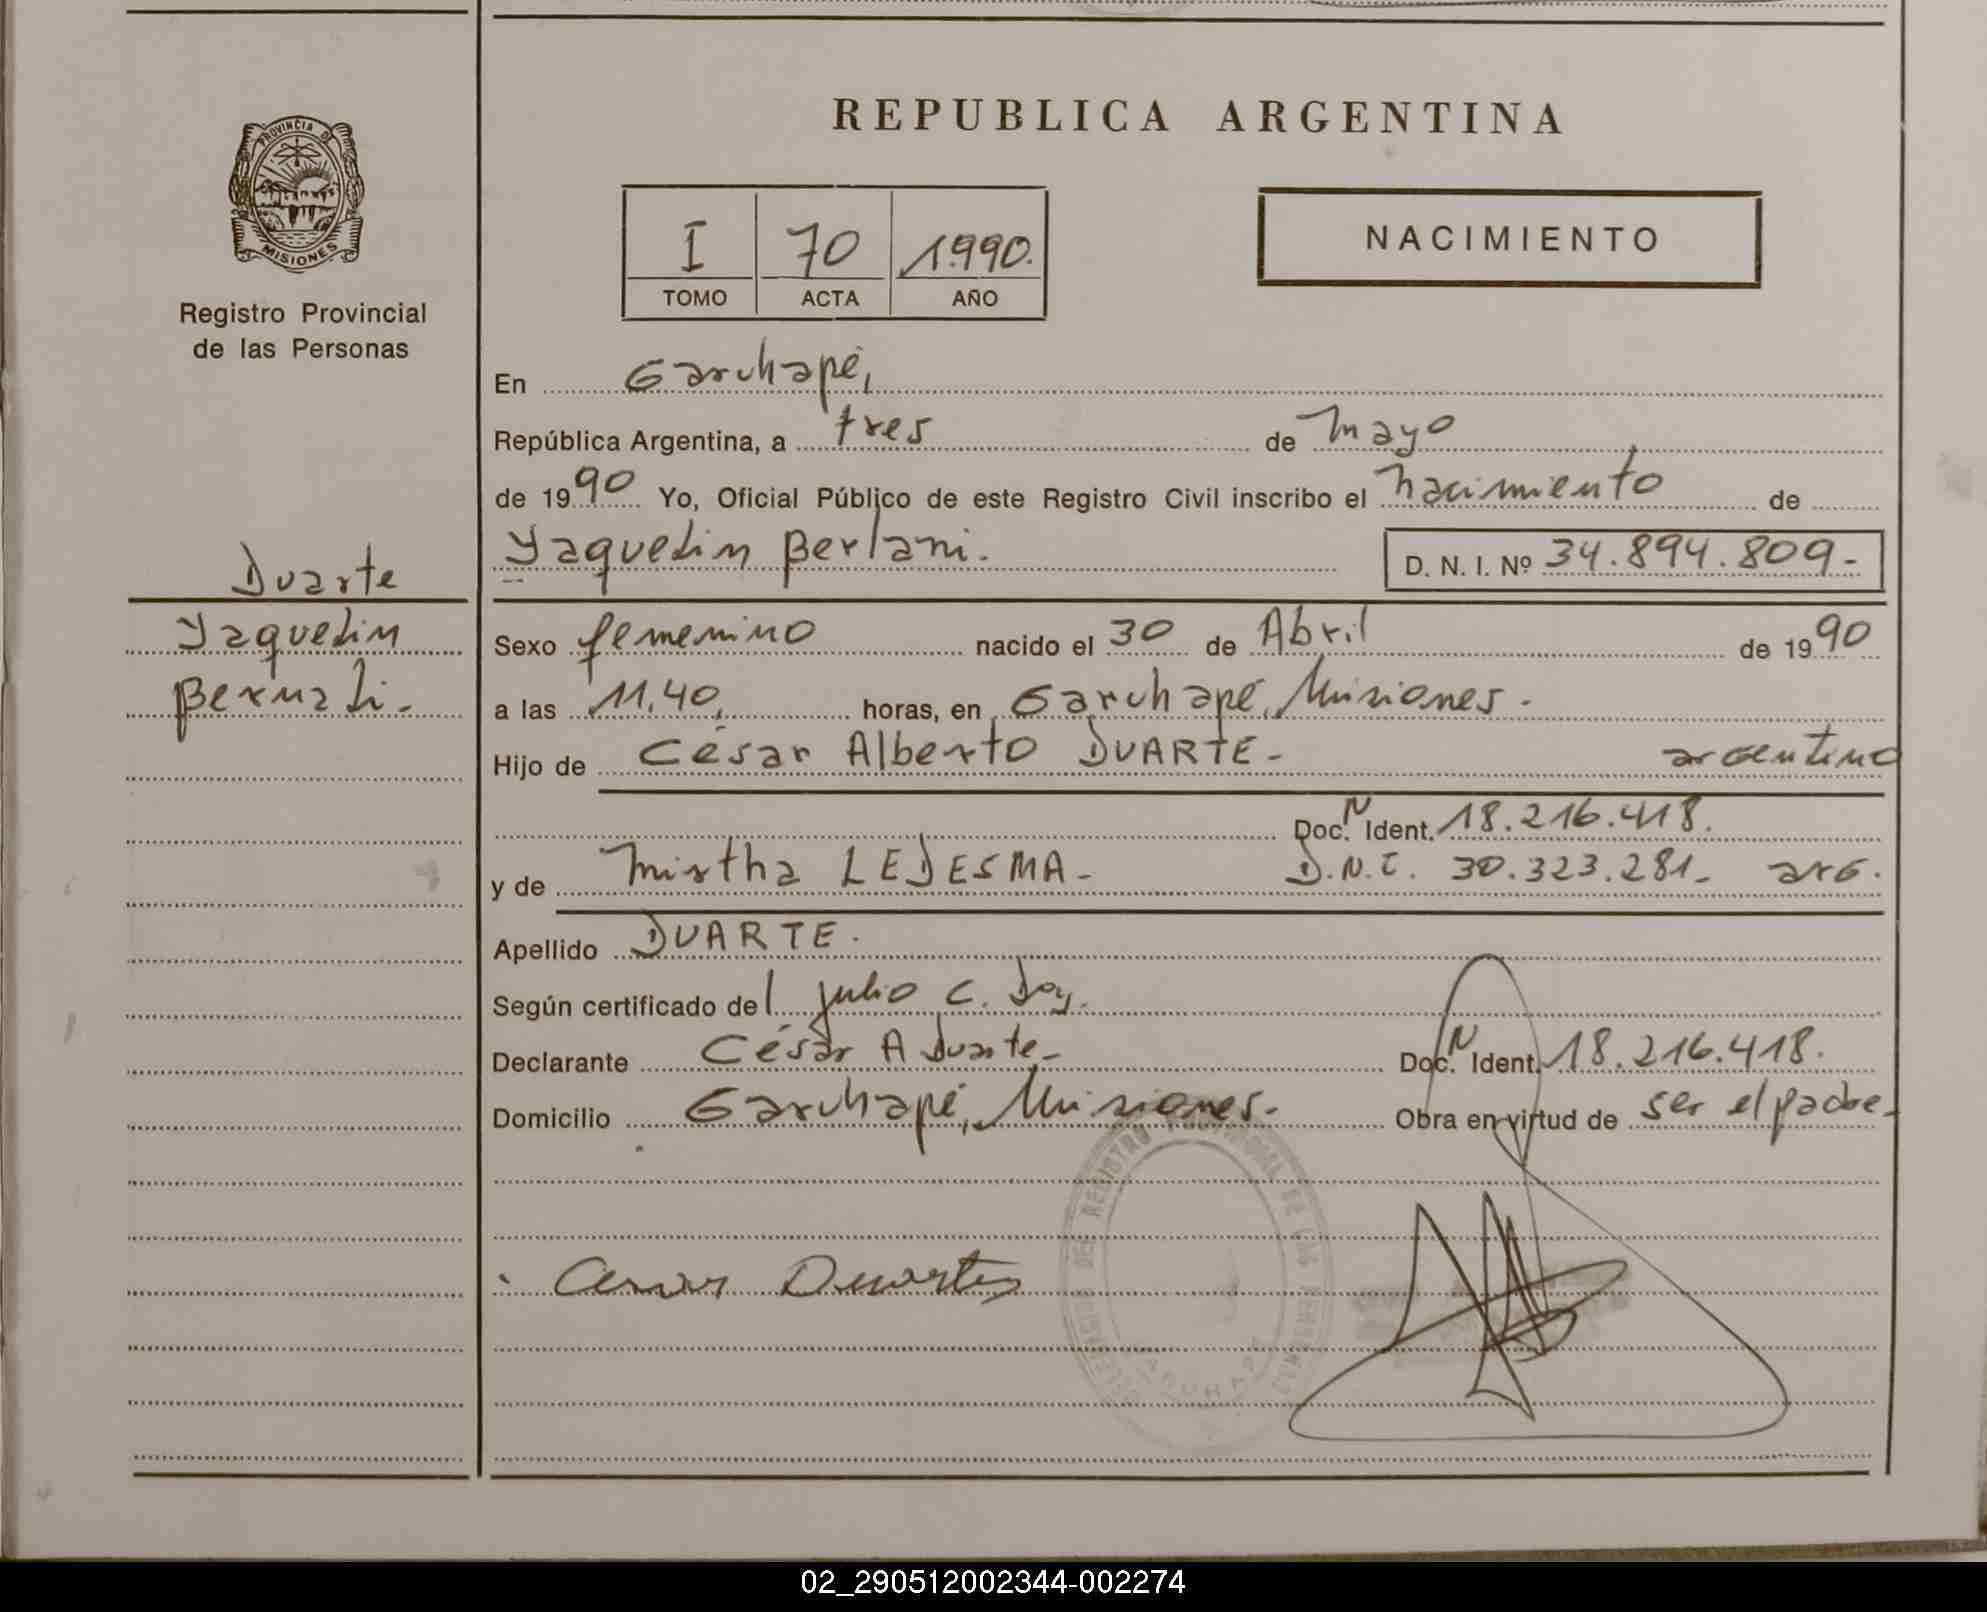 REPUBLICA ARGENTINA
PROVINCIA DE
MISIONES
Registro Provincial
de las Personas
I 70 1.990.
TOMO ACTA AÑO
NACIMIENTO
En Garuhapé,
República Argentina, a tres de Mayo
de 1990 Yo, Oficial Público de este Registro Civil inscribo el nacimiento de
Yaquelin Berlani.
D. N. I. Nº 34.894.809-
Duarte
Yaquelin
Bernali.
Sexo femenino nacido el 30 de Abril de 1990
a las 11,40, horas, en Garuhapé, Misiones.
Hijo de César Alberto DUARTE- argentino
Doc. N Ident. 18.216.418.
y de Mirtha LEDESMA- D.N.I. 30.323.281- arg.
Apellido DUARTE.
Según certificado del Julio C.
Declarante César A Duarte- Doc. N Ident. 18.216.418.
Domicilio Garuhapé, Misiones. Obra en virtud de ser el padre-
Cesar Duarte
DEL REGISTRO PROVINCIAL DE LAS PERSONAS
GARUHAPE
02_290512002344-002274